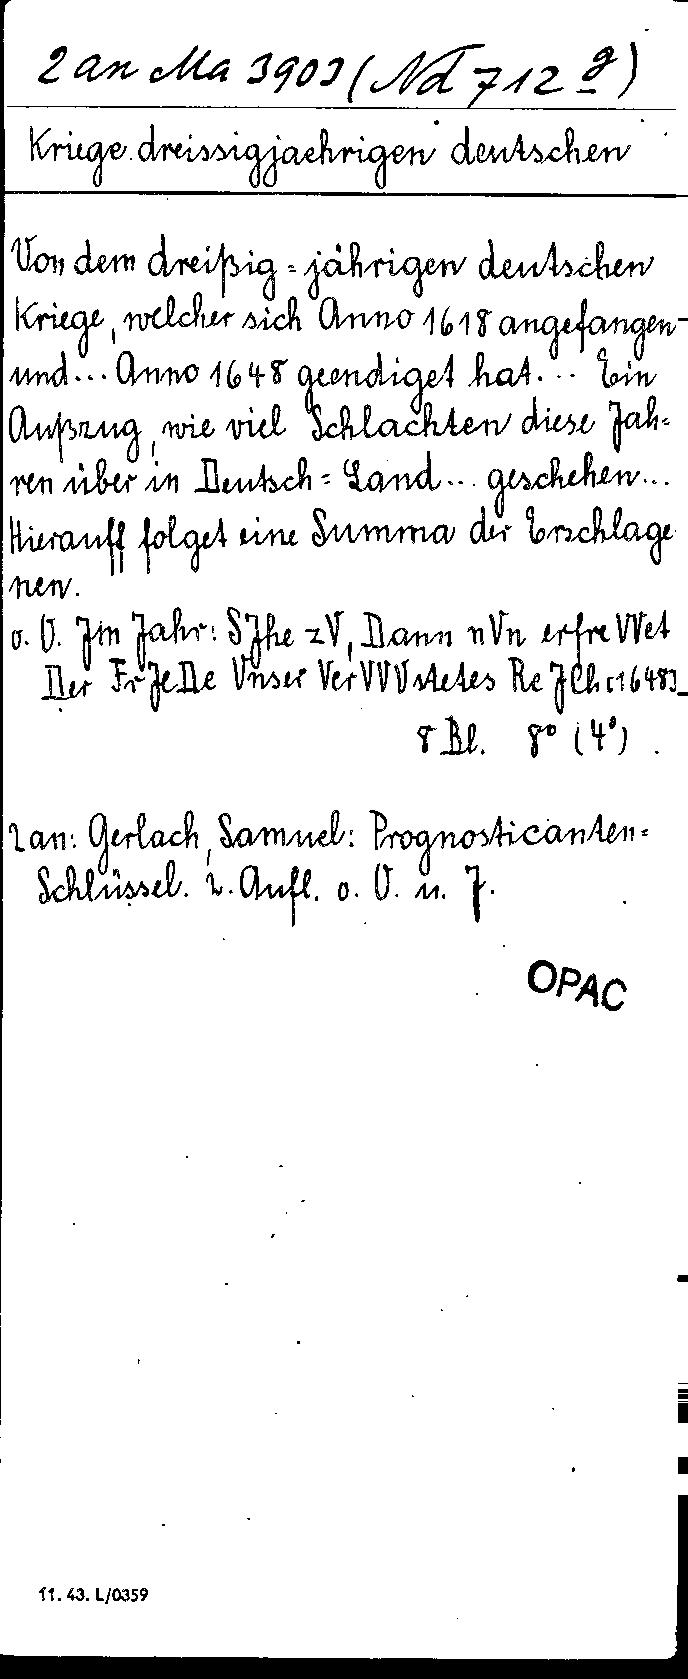 2 an Ma 3903 (Nd 712 g)
Kriege dreissigjaehrigen deutschen
Von dem dreißig=jährigen deutschen
Kriege, welcher sich Anno 1618 angefangen
und... Anno 1648 geendiget hat... Ein
Außzug, wie viel Schlachten diese Jah=
ren über in Deutsch=Land... geschehen...
Hierauff folget eine Summa der Erschlage
nen.
o. O. Jm Jahr: SJhe zV, Dann nVn erfreVVet
Der FrJeDe Vnser VerVVVstetes ReJCh [1648]
8 Bl. 8° (4°)
2 an: Gerlach, Samuel: Prognosticanten=
Schlüssel. 2. Aufl. o. O. u. J.
OPAC
11. 43. L/0359